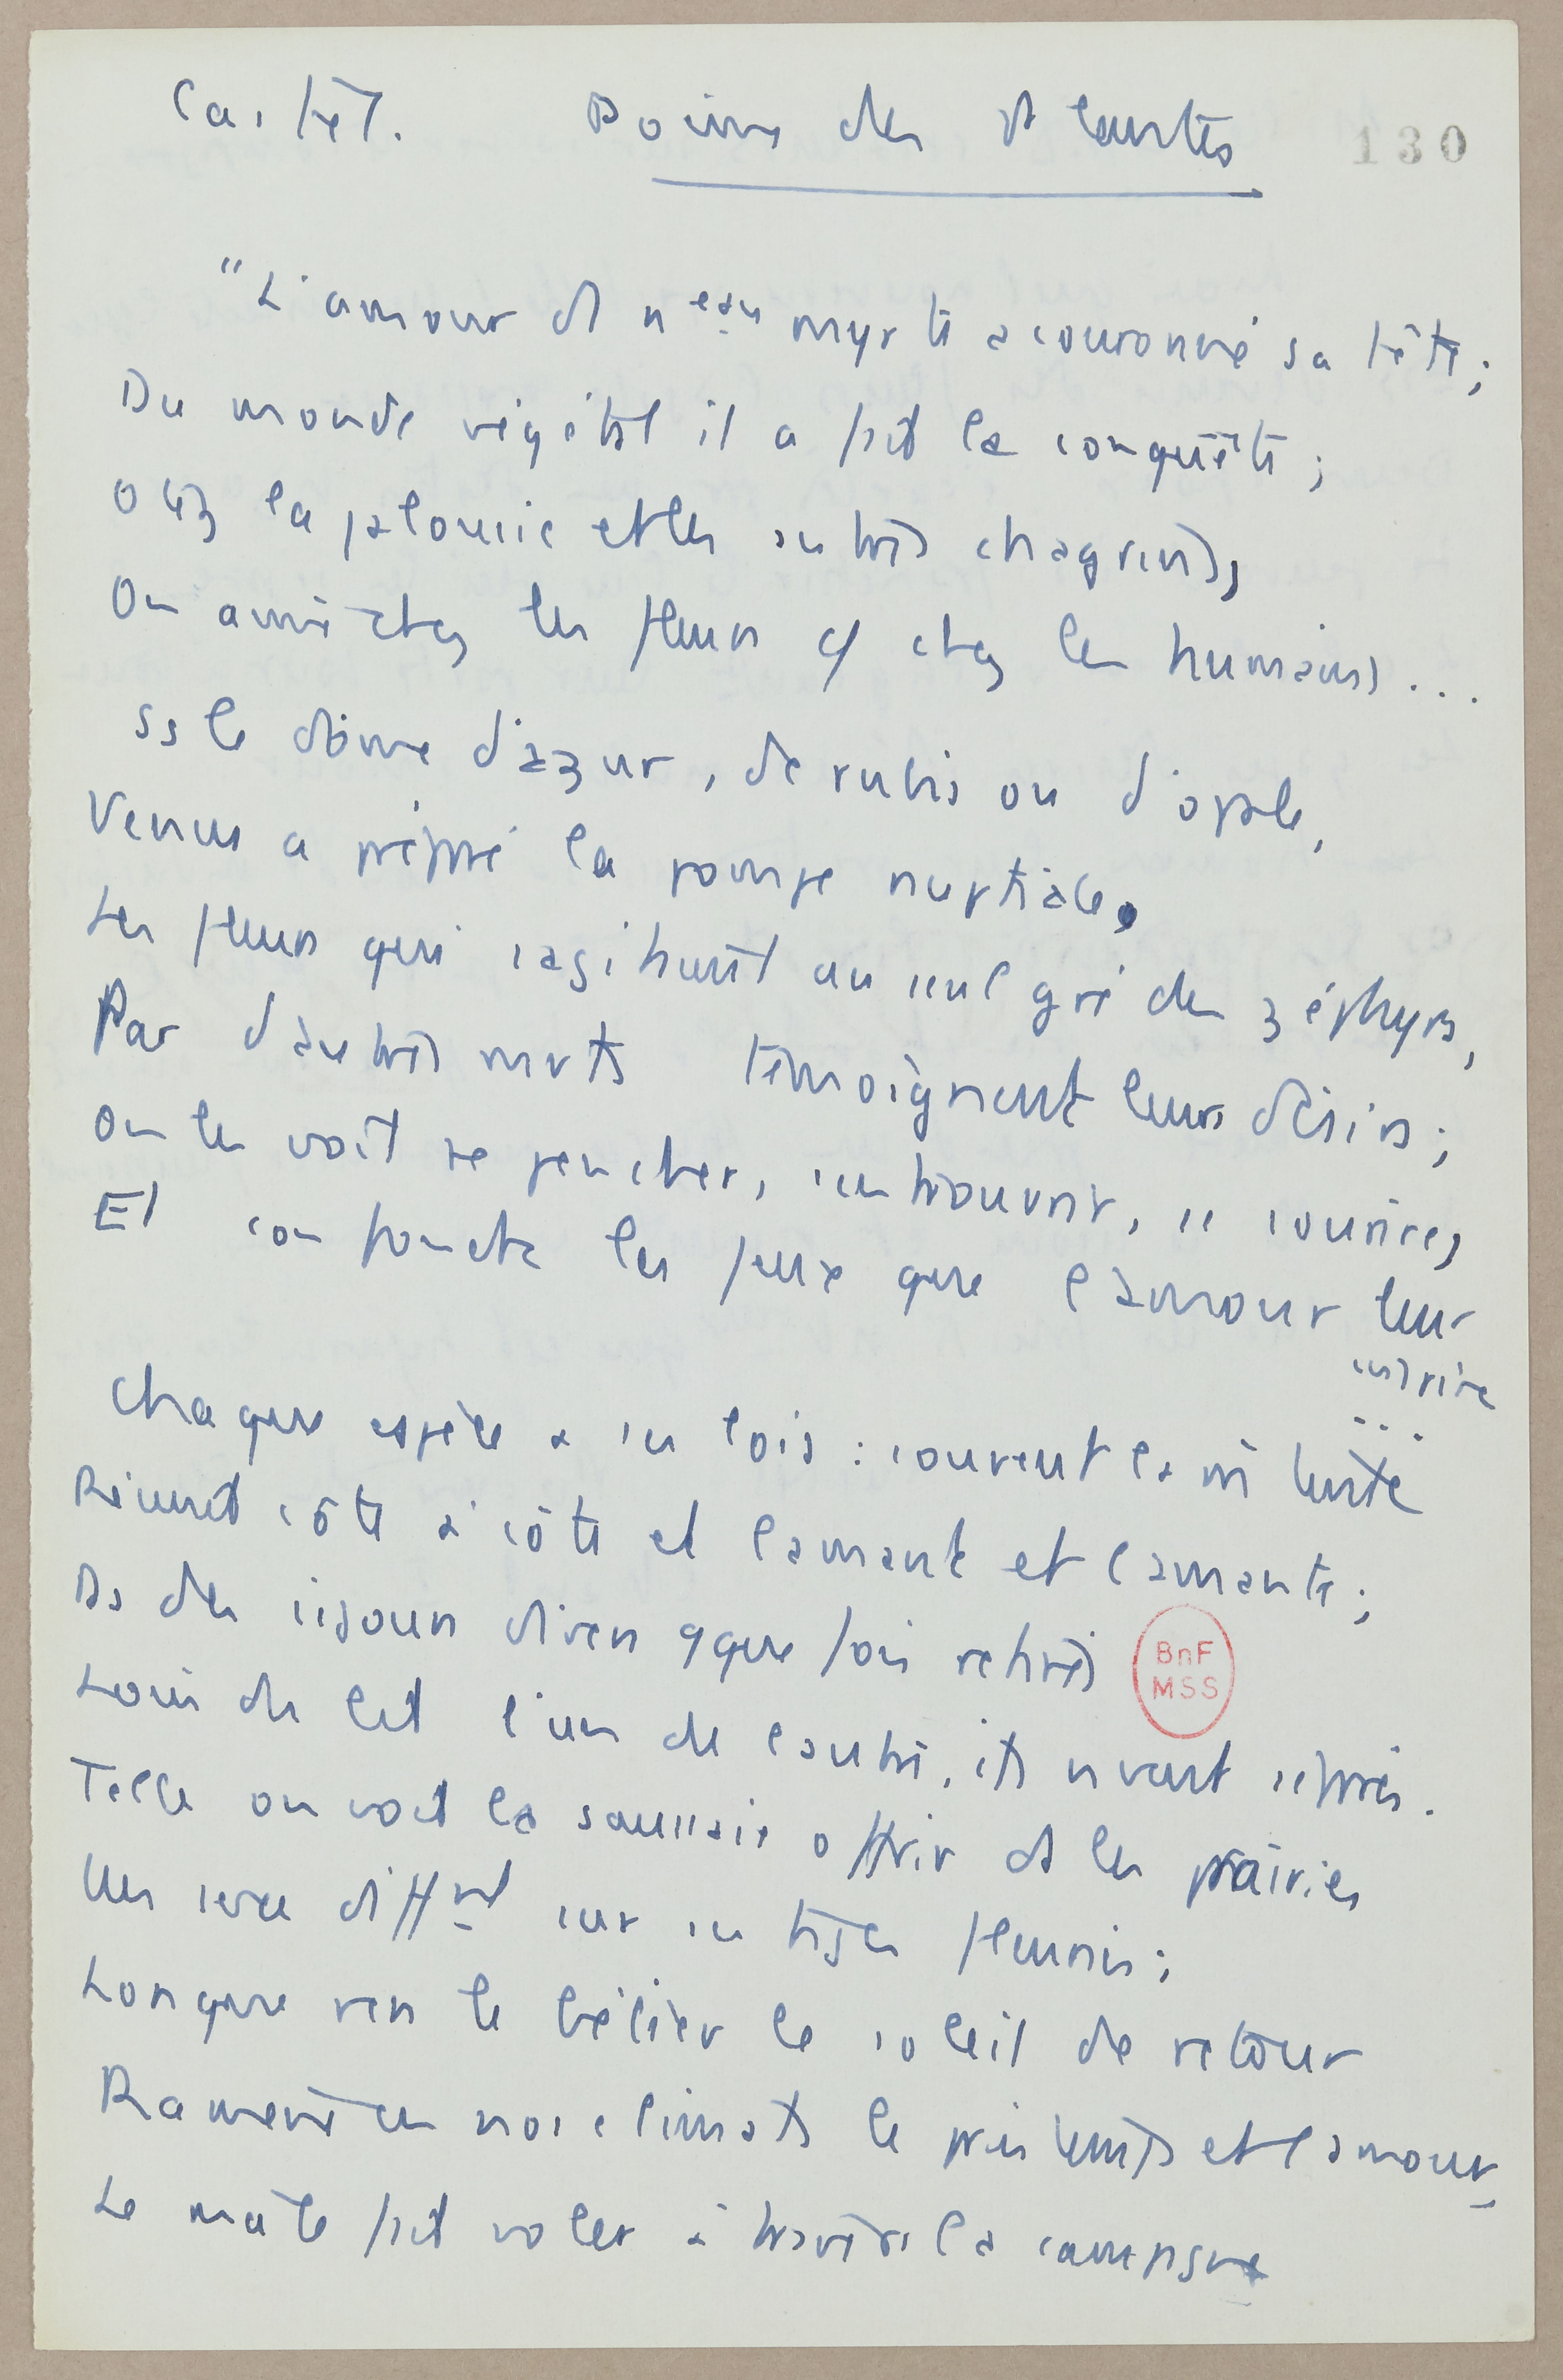 Castel. Poème des Plantes
130
"L'amour d neau myrte a couronné sa tête ;
Du monde végétal il a fait la conquête ;
Otez la jalousie et les autres chagrins,
On aime chez les fleurs c/ chez les humains ...
ss le dôme d'azur, de rubis ou d'opale,
Venus a préparé la pompe nuptiale,
Les fleurs qui s'agitent au seul gré des zéphyrs,
Par d'autres mvts témoignent leurs désirs ;
On les voit se pencher, s'entrouvrir, se sourire,
Et confondre les jeux que l'amour leur
inspire
...
Chaque espèce a ses lois : souvent la même tente
Réunit côte à côte et l'amant et l'amante ;
Ds des séjours divers qque fois retirés
Loin du lit l'un de l'autre, ils vivent séparés.
Telle on voit la saussaie offrir ds les prairies
Un sexe différent sur ses tiges fleuries ;
Lorsque vers le bélier le soleil de retour
Ramène en nos climats le printemps et l'amour,
Le mâle fait voler à travers la campagne
BnF
MSS